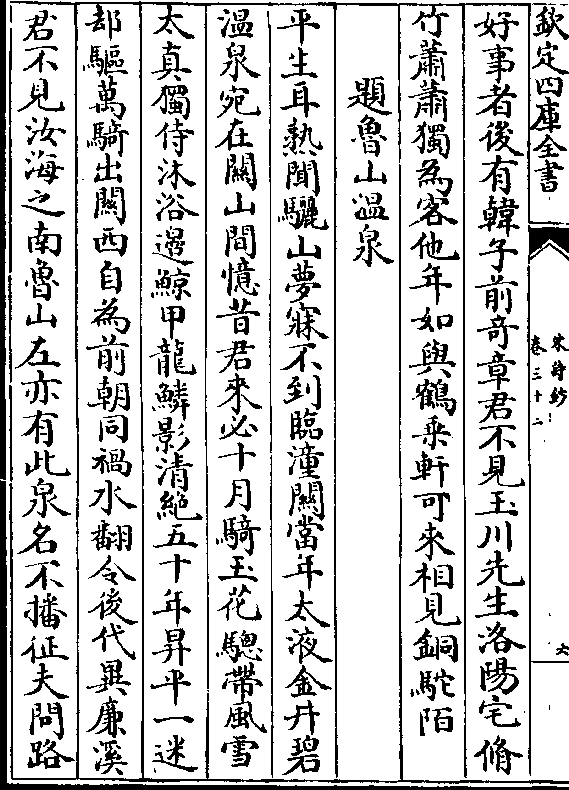 欽定四庫全書
宋詩鈔
卷三十二
六
好事者後有韓子前奇章君不見玉川先生洛陽宅脩
竹蕭蕭獨為客他年如與鶴乘軒可來相見銅駝陌
題魯山溫泉
平生耳熟聞驪山夢寐不到臨潼關當年太液金井碧
溫泉宛在關山間憶昔君來必十月騎玉花驄帶風雪
太真獨侍沐浴邊鯨甲龍鱗影清絕五十年昇平一迷
却驅萬騎出關西自為前朝同禍水翻令後代異廉溪
君不見汝海之南魯山左亦有此泉名不播征夫問路